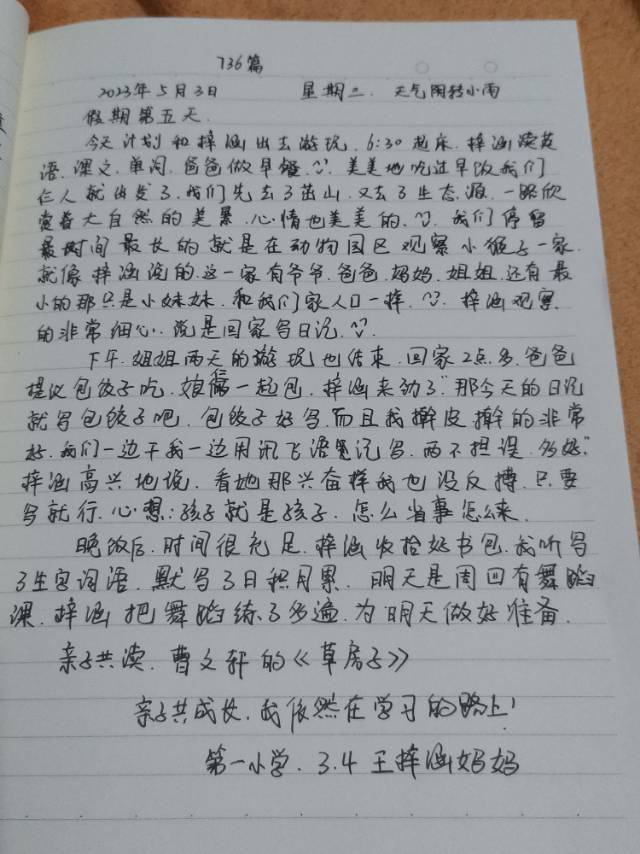 736篇
2023年5月3日 星期三. 天气阴转小雨
假期第五天.
今天计划和梓涵出去游玩. 6:30起床. 梓涵读英
语. 课文. 单词. 爸爸做早餐. 美美地吃过早饭我们
仨人就出发了. 我们先去了 山. 又去了生态源. 一路欣
赏着大自然的美景. 心情也美美的. 我们停留
最时间最长的就是在动物园区观察小猴子一家.
就像梓涵说的. 这一家有爷爷. 爸爸. 妈妈. 姐姐. 还有最
小的那只是小妹妹. 和我们家人口一样. 梓涵观察
的非常细心. 说是回家写日记.
下午. 姐姐两天的游玩也结束. 回家2点多. 爸爸
提议包饺子吃. 娘俩一起包. 梓涵来劲了“那今天的日记
就写包饺子吧. 包饺子好写. 而且我擀皮擀的非常
好. 我们一边干我一边用讯飞语笔记写. 两不担误. 多好.”
梓涵高兴地说. 看她那兴奋样我也没反搏. 只要
写就行. 心想: 孩子就是孩子. 怎么省事怎么来.
晚饭后. 时间很充足. 梓涵收拾好书包. 我听写
了生字词语. 默写了日积月累. 明天是周四有舞蹈
课. 梓涵把舞蹈练了多遍. 为明天做好准备.
亲子共读. 曹文轩的《草房子》
亲子共成长. 我依然在学习的路上!
第一小学. 3.4 王梓涵妈妈